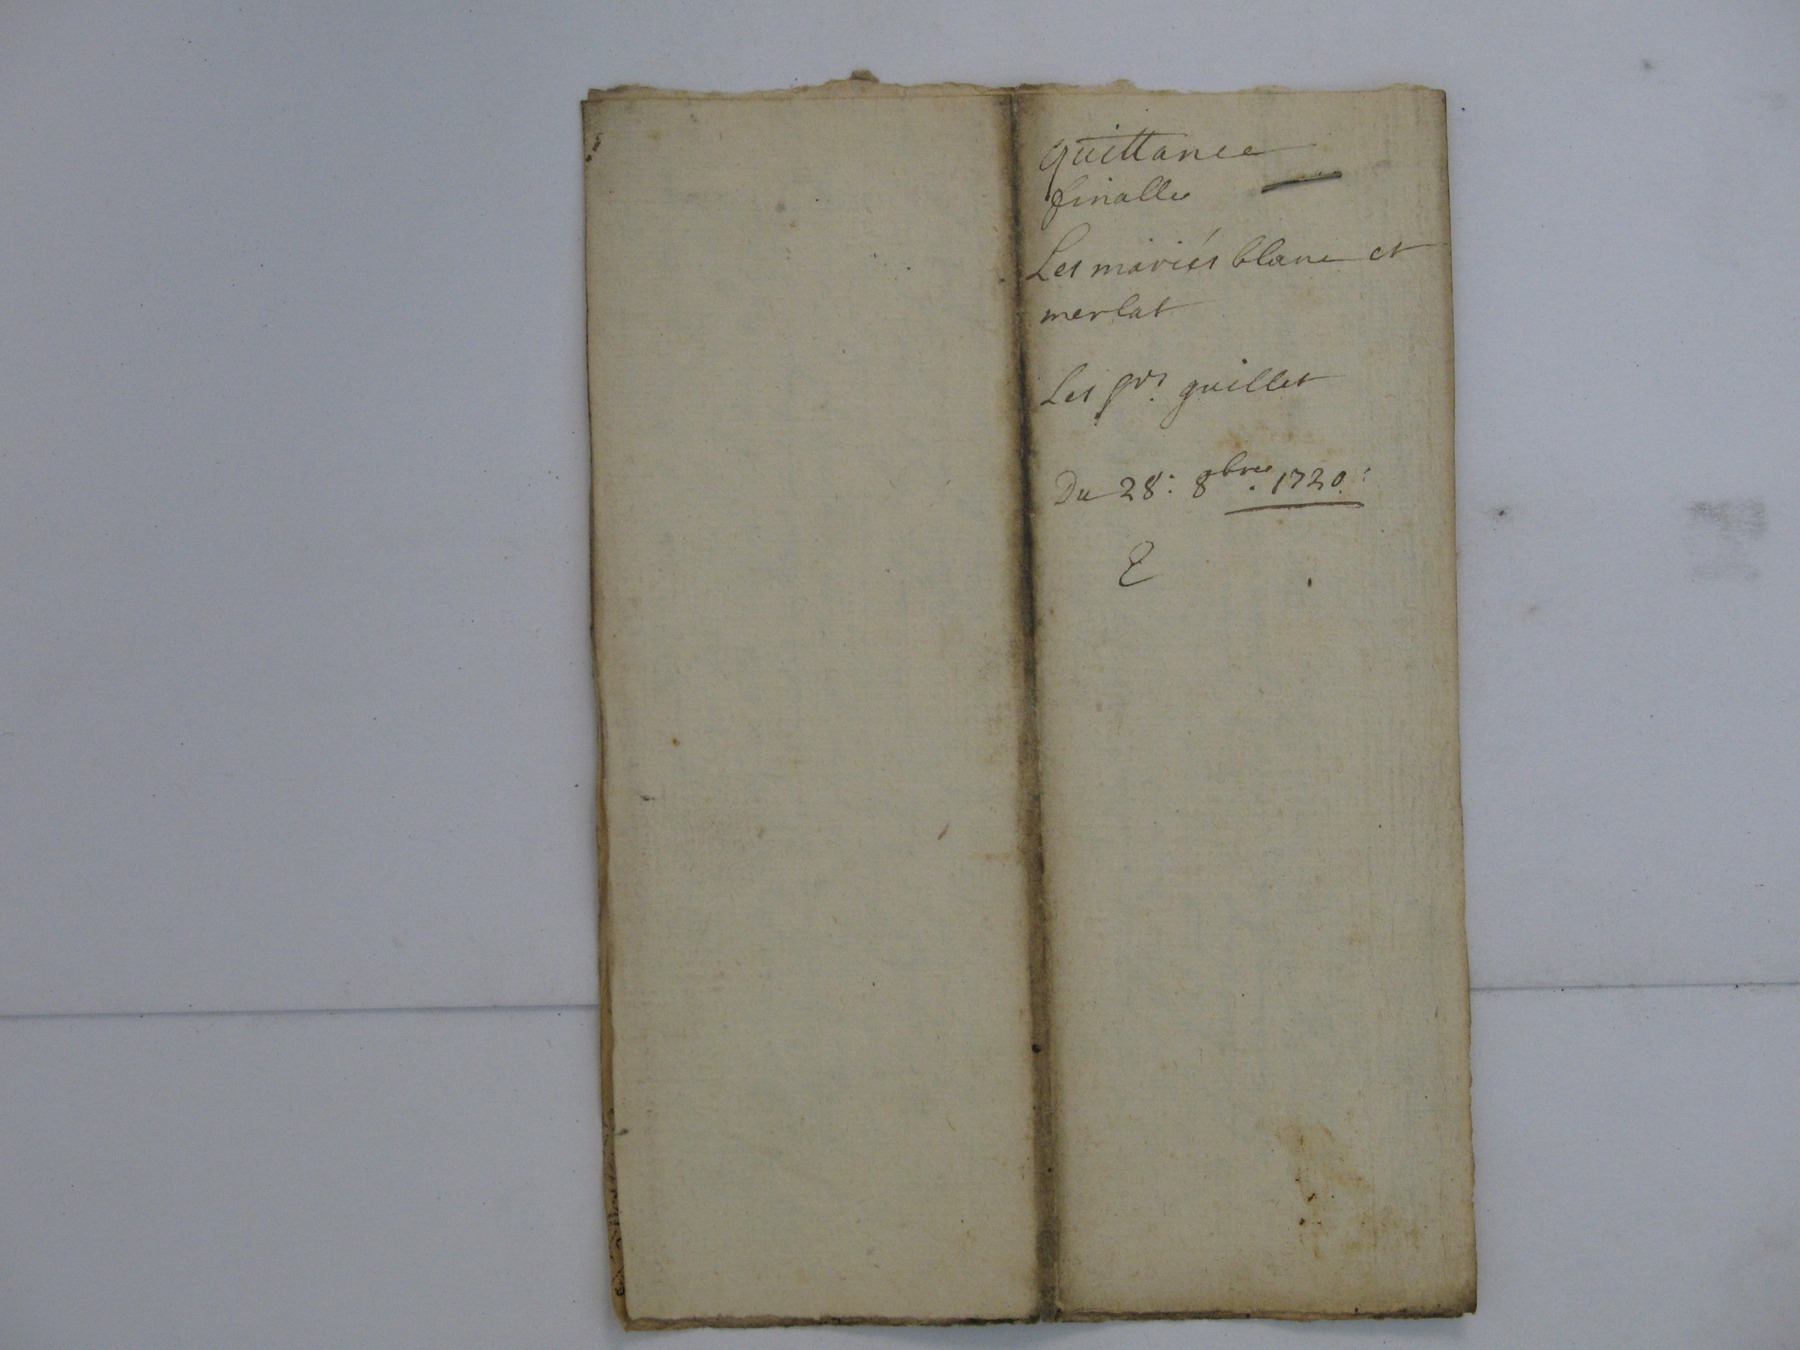 quittance
finalle
Les mariés blanc et
merlat
Les srs. guillet
Du 28e. 8bre. 1720.
E